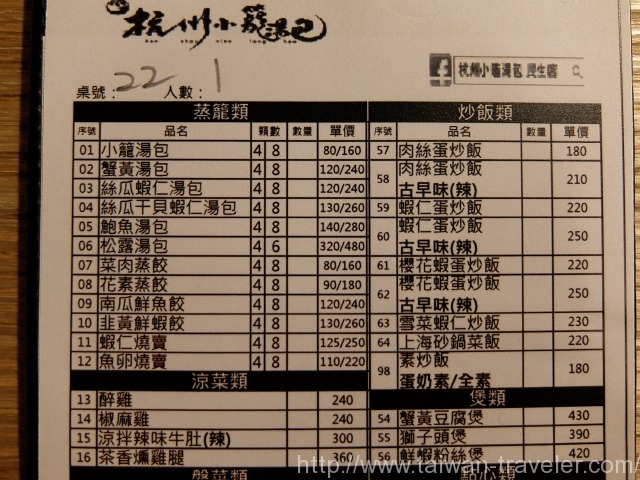 杭州小籠湯包
hang zhou xiao long tang bao
杭州小籠湯包 民生店
桌號: 22 人數: 1
蒸籠類
序號 品名 顆數 數量 單價
01 小籠湯包 4 8 80/160
02 蟹黃湯包 4 8 120/240
03 絲瓜蝦仁湯包 4 8 120/240
04 絲瓜干貝蝦仁湯包 4 8 130/260
05 鮑魚湯包 4 8 140/280
06 松露湯包 4 6 320/480
07 菜肉蒸餃 4 8 80/160
08 花素蒸餃 4 8 90/180
09 南瓜鮮魚餃 4 8 120/240
10 韭黃鮮蝦餃 4 8 130/260
11 蝦仁燒賣 4 8 125/250
12 魚卵燒賣 4 8 110/220
涼菜類
13 醉雞 240
14 椒麻雞 240
15 涼拌辣味牛肚(辣) 300
16 茶香燻雞腿 360
盤菜類
炒飯類
序號 品名 數量 單價
57 肉絲蛋炒飯 180
58 肉絲蛋炒飯 210
古早味(辣)
59 蝦仁蛋炒飯 220
60 蝦仁蛋炒飯 250
古早味(辣)
61 櫻花蝦蛋炒飯 220
62 櫻花蝦蛋炒飯 250
古早味(辣)
63 雪菜蝦仁炒飯 230
64 上海砂鍋菜飯 220
98 素炒飯 180
蛋奶素/全素
煲類
54 蟹黃豆腐煲 430
55 獅子頭煲 390
56 鮮蝦粉絲煲 420
點心類
http://www.taiwan-traveler.com/